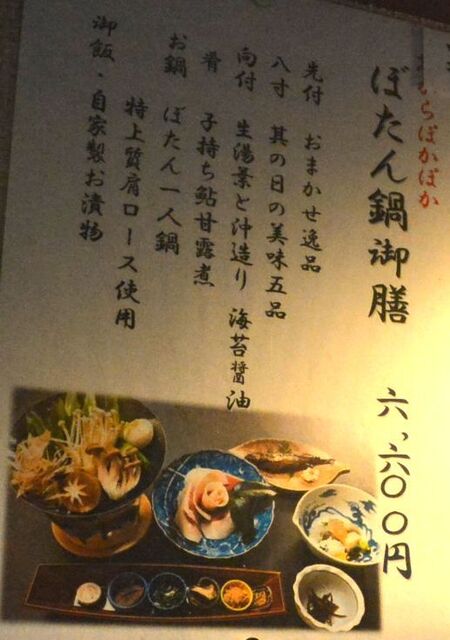 らぽかぽか
ぼたん鍋御膳 六、六〇〇円
先付 おまかせ逸品
八寸 其の日の美味五品
向付 生湯葉と沖造り 海苔醤油
肴 子持ち鮎甘露煮
お鍋 ぼたん一人鍋
特上質肩ロース使用
御飯・自家製お漬物